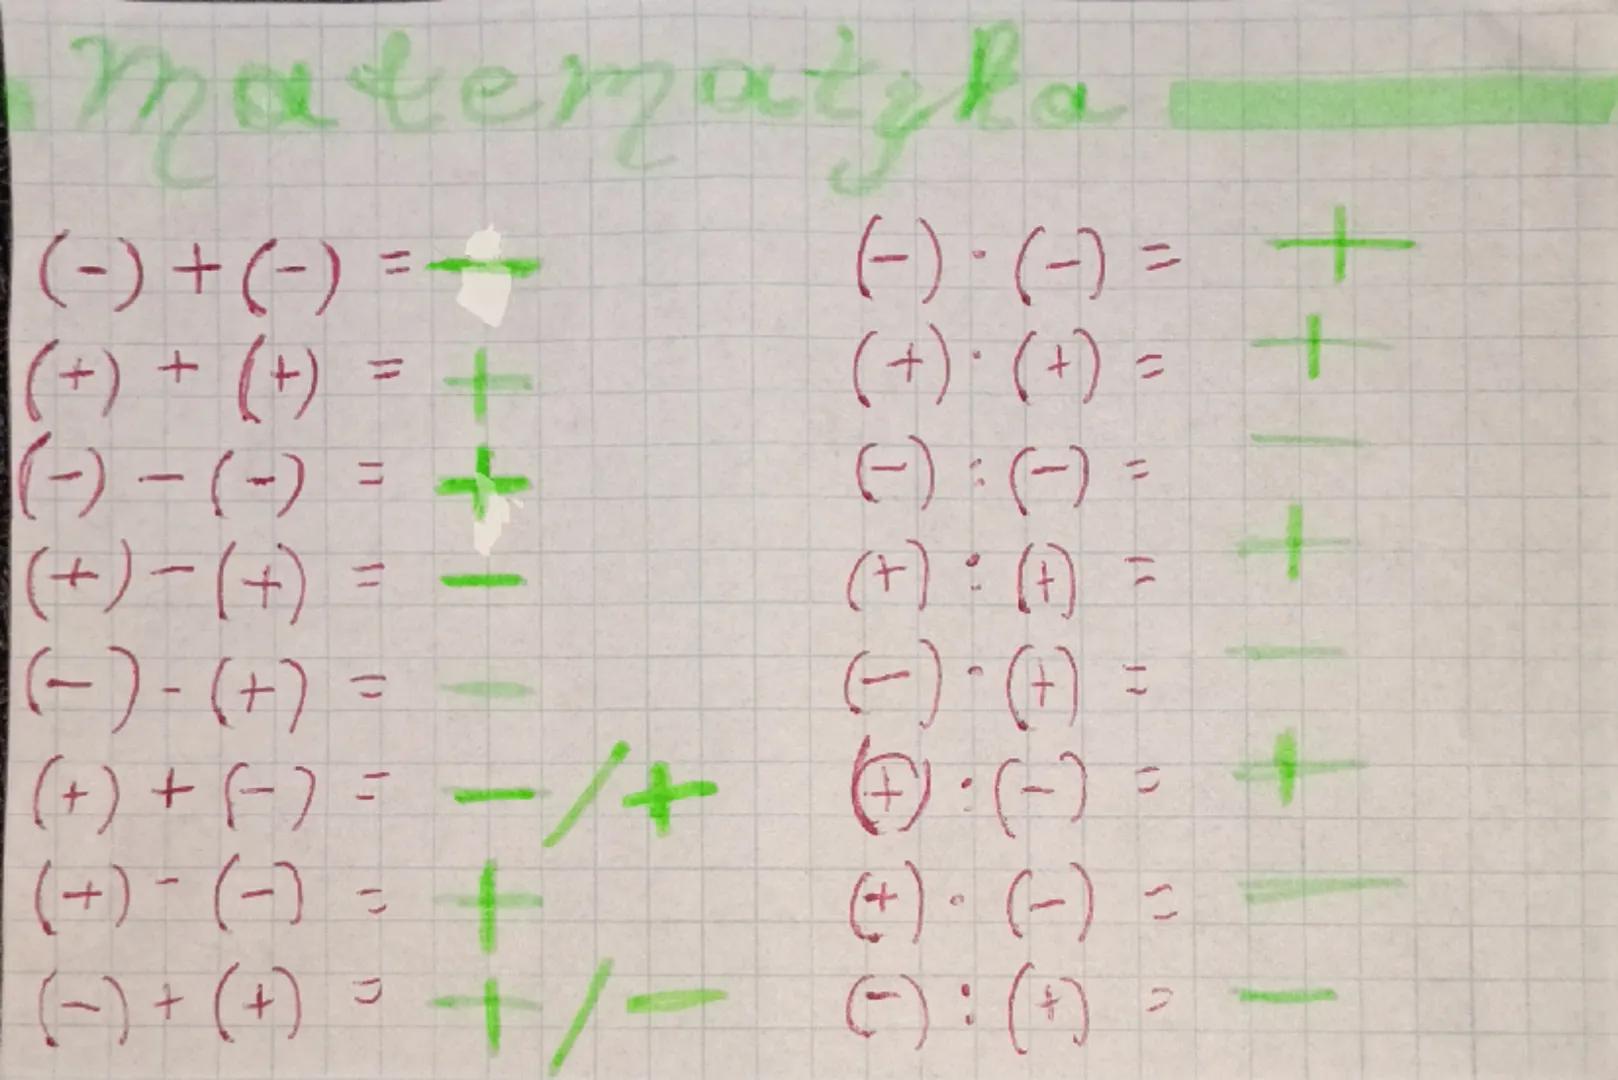 Matematyka
(-) + (-) = -
(+) + (+) = +
(-) - (-) = +
(+) - (+) = -
(-) - (+) = -
(+) + (-) = - / +
(+) - (-) = +
(-) + (+) = + / -
(-) · (-) = +
(+) · (+) = +
(-) : (-) = -
(+) : (+) = +
(-) · (+) = -
(+) : (-) = +
(+) · (-) = -
(-) : (+) = -